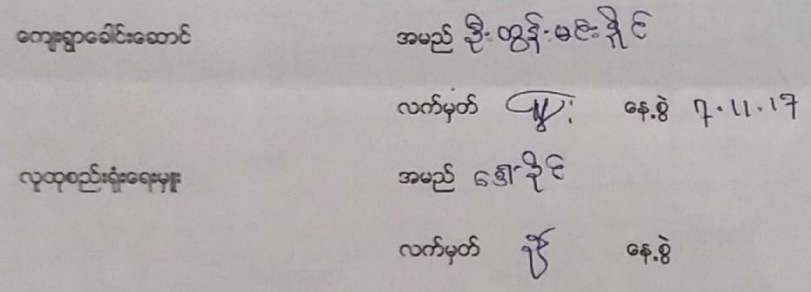 ကျေးရွာခေါင်းဆောင် အမည် ဦးထွန်းမင်းနိုင်
လက်မှတ် နေ့စွဲ 7.11.17
လူထုစည်းရုံးရေးမှူး အမည် ဒေါ်ခိုင်
လက်မှတ် နေ့စွဲ